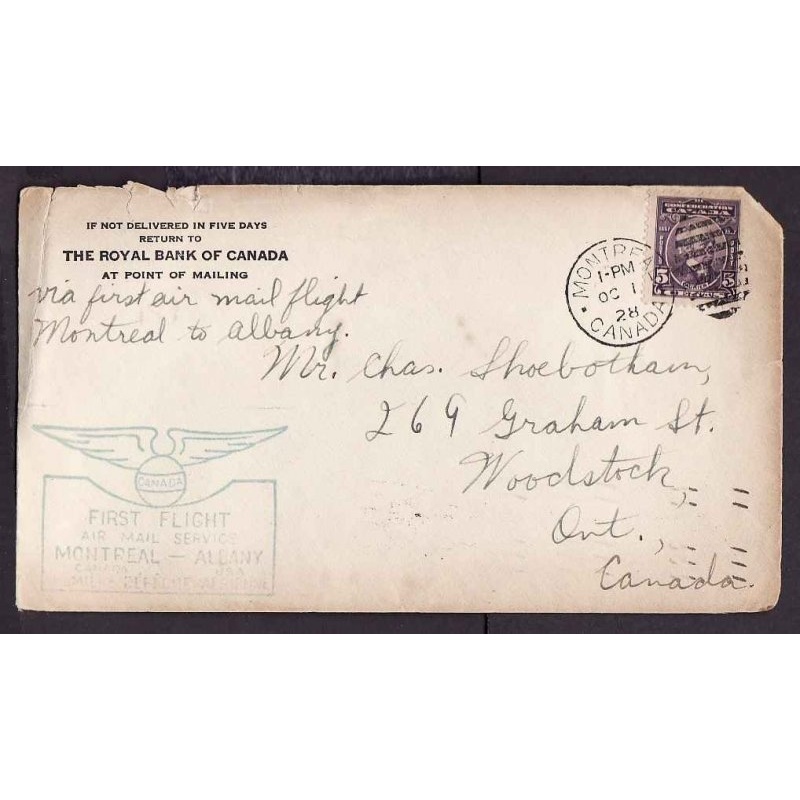 IF NOT DELIVERED IN FIVE DAYS
RETURN TO
THE ROYAL BANK OF CANADA
AT POINT OF MAILING
via first air mail flight
Montreal to Albany.
MONTREAL
1-PM
OC 1
28
CANADA
CONFEDERATION
CANADA
5 5
Mr. Chas. Shoebotham,
269 Graham St.
Woodstock,
Ont.,
Canada.
CANADA
FIRST FLIGHT
AIR MAIL SERVICE
MONTREAL — ALBANY
CANADA USA